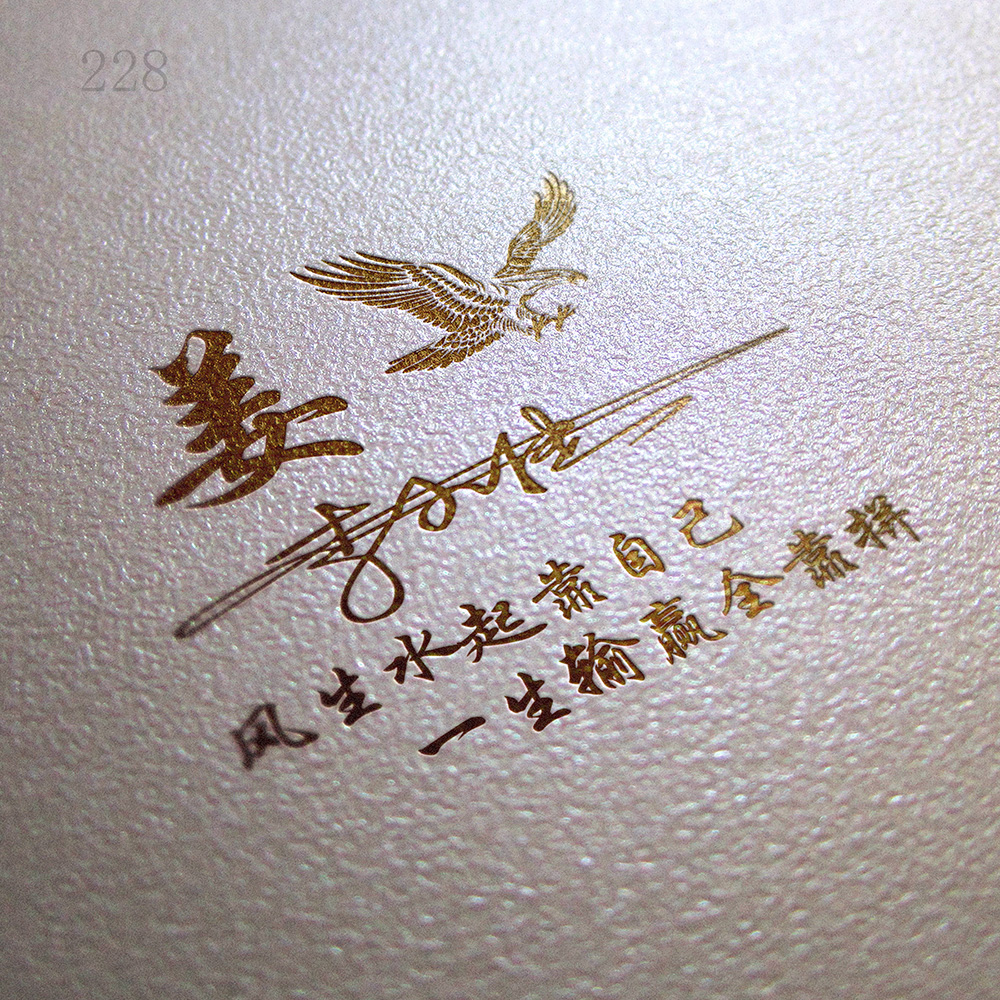 228
姜
风生水起靠自己
一生输赢全靠拼